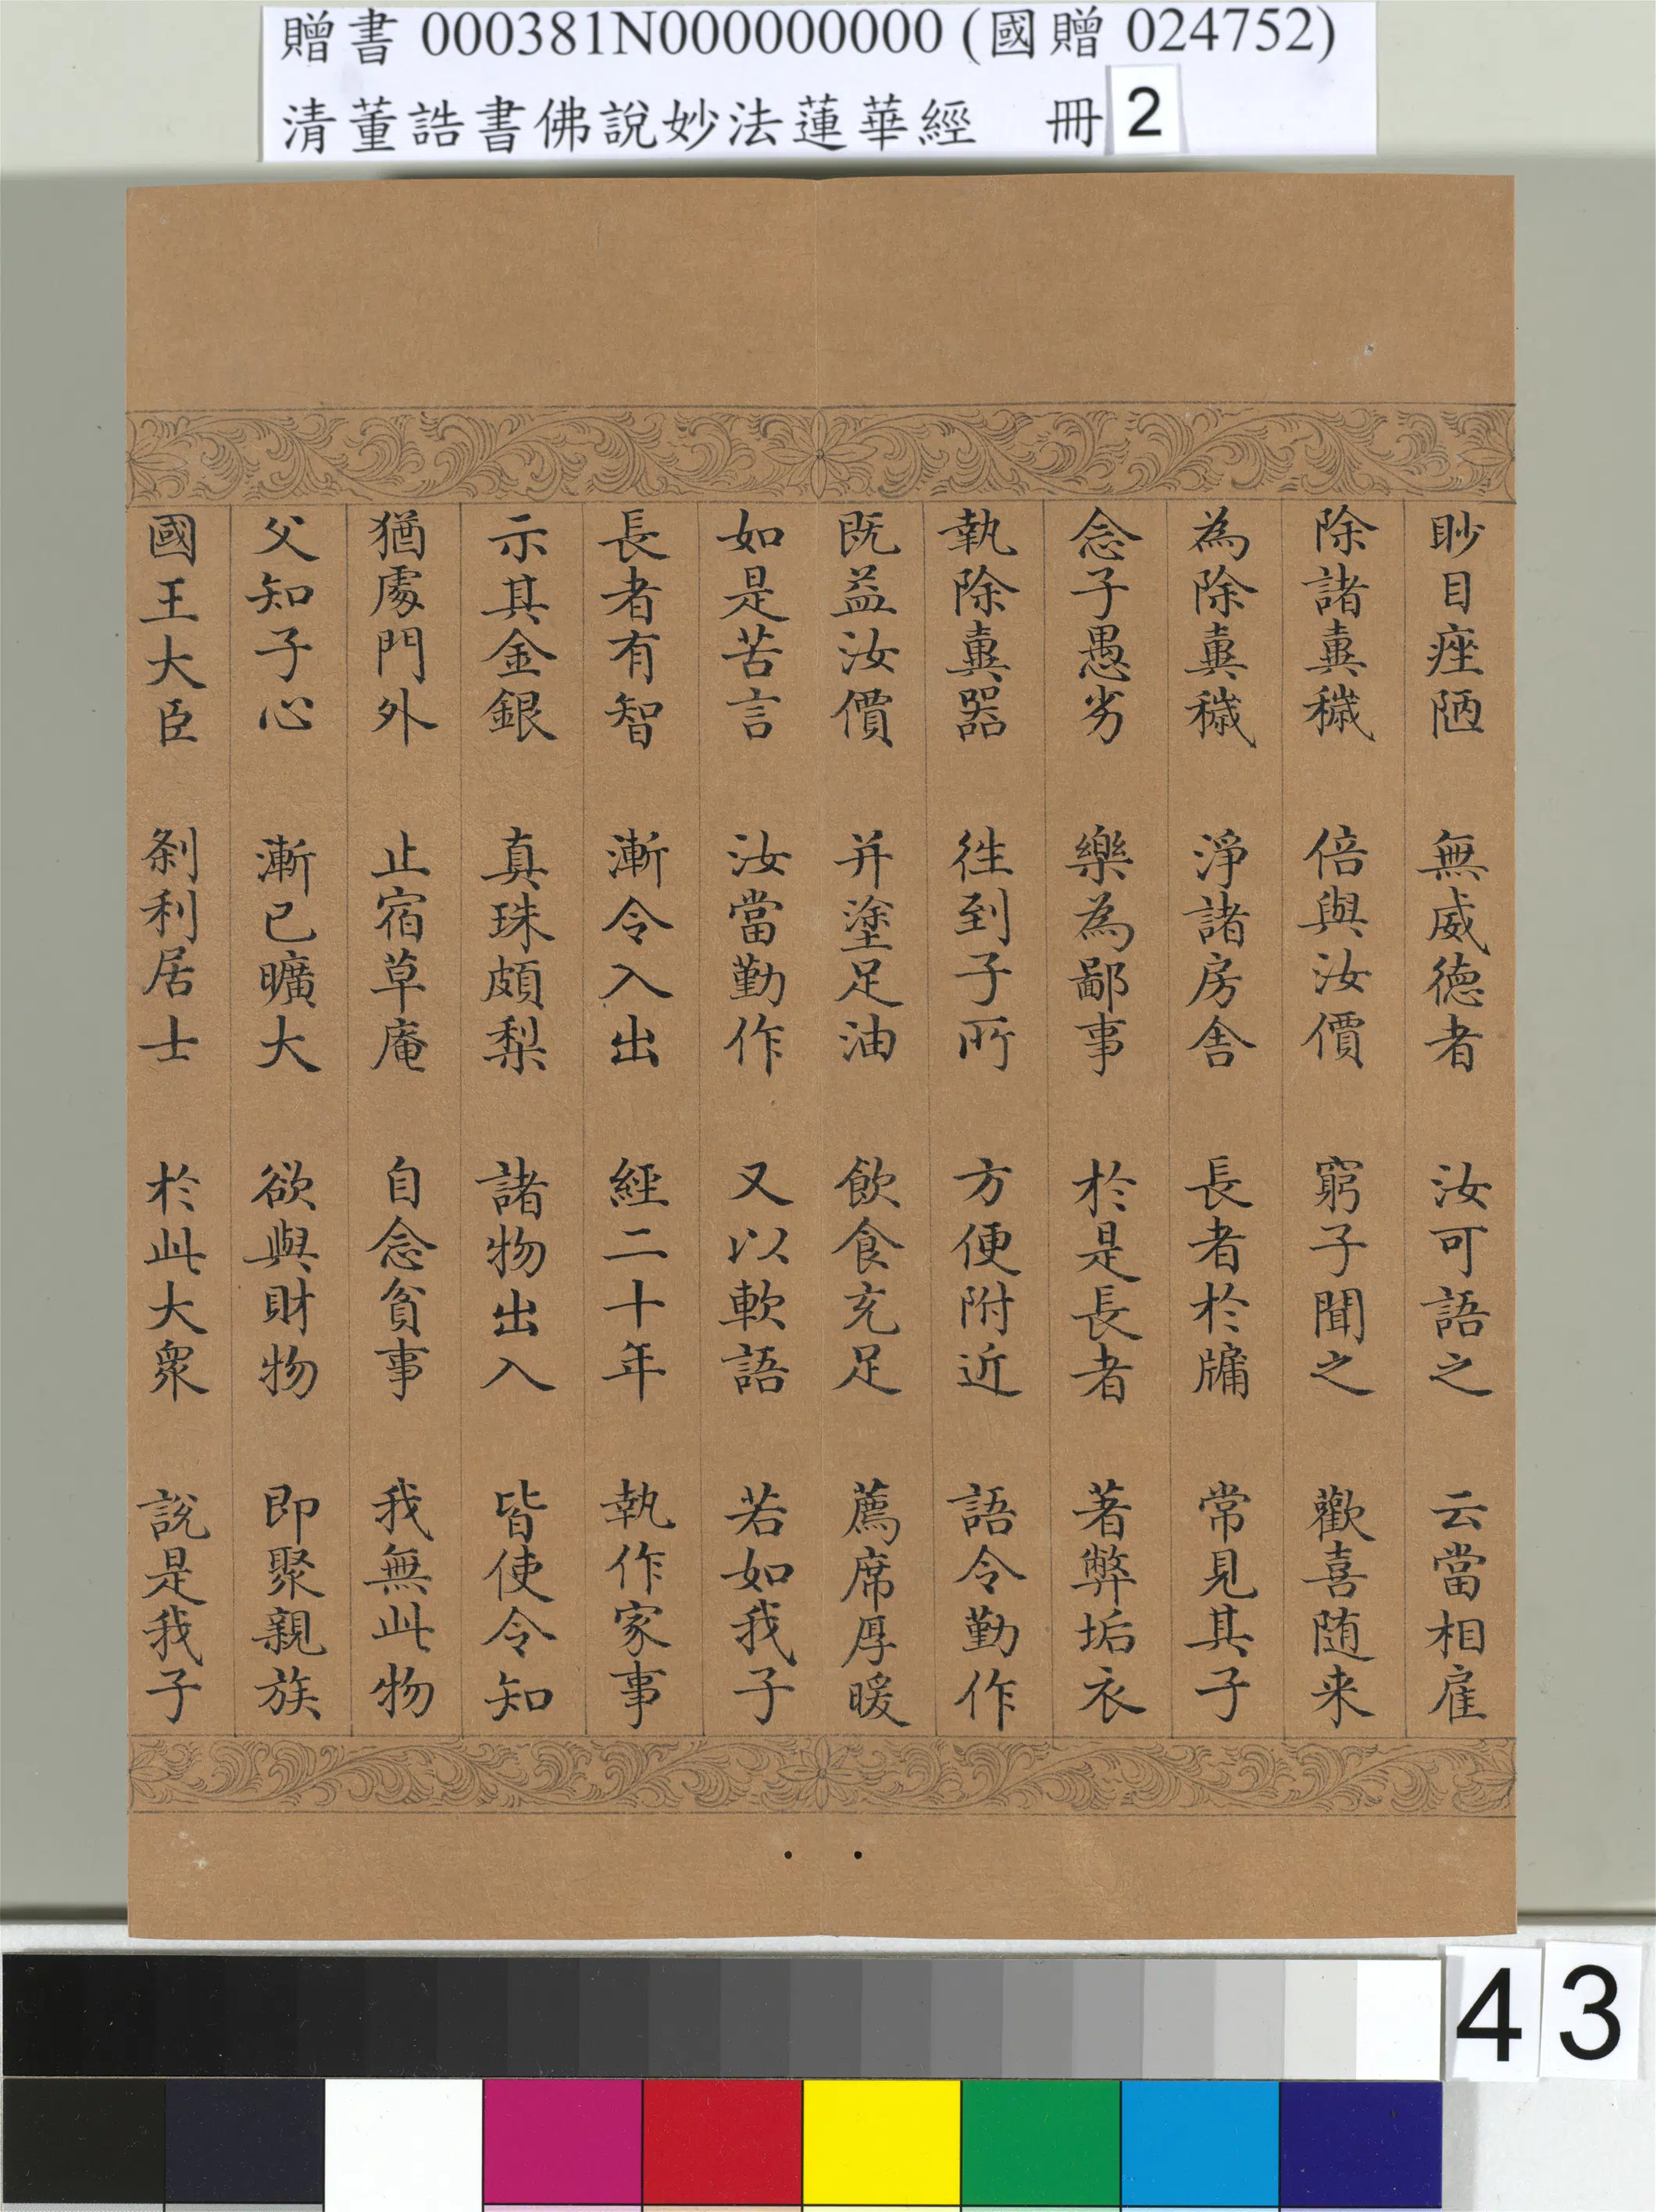 贈書 000381N000000000 (國贈 024752)
清董誥書佛說妙法蓮華經 冊 2
眇目痤陋 無威德者 汝可語之 云當相雇
除諸糞穢 倍與汝價 窮子聞之 歡喜随来
為除糞穢 淨諸房舍 長者於牖 常見其子
念子愚劣 樂為鄙事 於是長者 著弊垢衣
執除糞器 徃到子所 方便附近 語令勤作
既益汝價 并塗足油 飲食充足 薦席厚暖
如是苦言 汝當勤作 又以軟語 若如我子
長者有智 漸令入出 經二十年 執作家事
示其金銀 真珠頗梨 諸物出入 皆使令知
猶處門外 止宿草庵 自念貧事 我無此物
父知子心 漸已曠大 欲與財物 即聚親族
國王大臣 剎利居士 於此大衆 說是我子
43